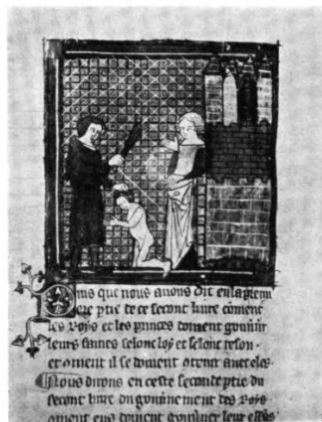 Puis que nous auons dit en la premi
ere ptie de ce second liure coment
les Roys et les princes doiuent gouuner
leurs fames selonc loy et selonc reson.
et coment il se doiuent auoir auec eles.
Nous dirons en ceste seconde ptie du
second liure du gouuernement des Roys
coment eus doiuent gouuerner leur effns